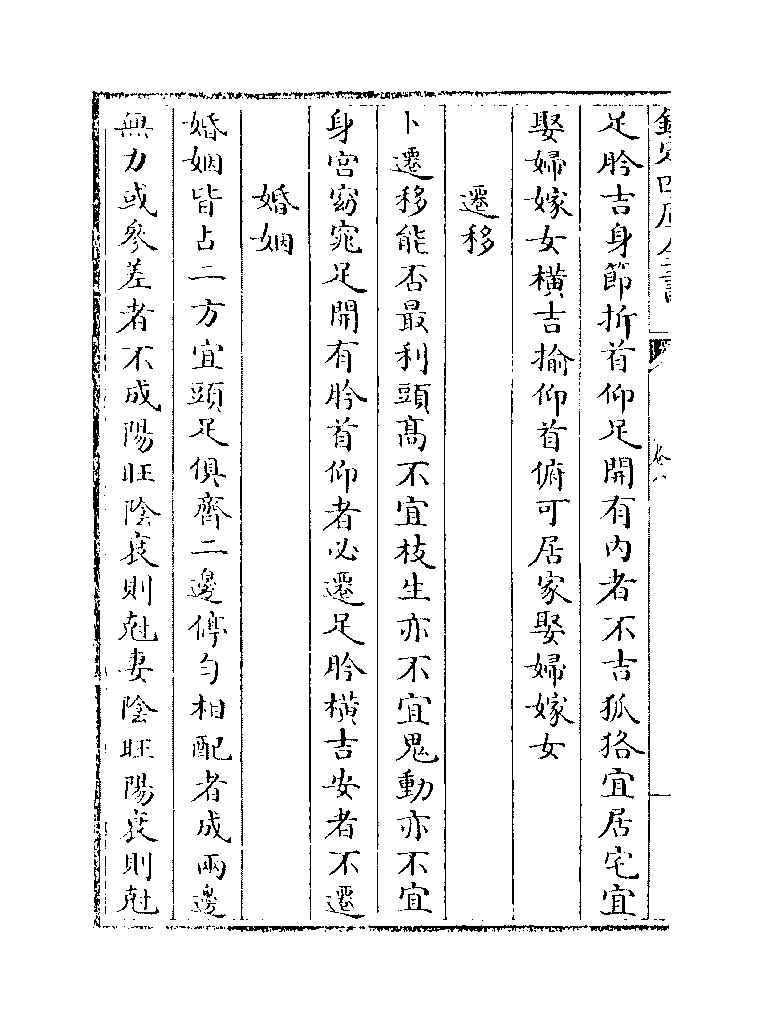 足肣吉身節折首仰足開有内者不吉狐狢宜居宅宜
娶婦嫁女横吉揄仰首俯可居家娶婦嫁女
遷移
卜遷移能否最利頭髙不宜枝生亦不宜鬼動亦不宜
身宫窈窕足開有肣首仰者必遷足肣横吉安者不遷
婚姻
婚姻皆占二方宜頭足俱齊二邊停匀相配者成兩邊
無力或參差者不成陽旺陰衰則尅妻陰旺陽衰則尅